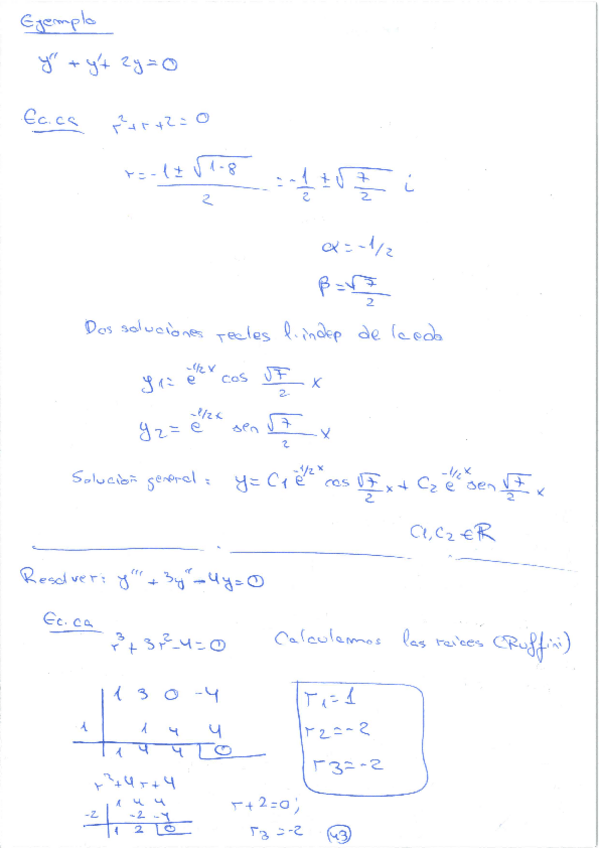 Ejemplo
y'' + y' + 2y = 0
Ec. ca r² + r + 2 = 0
r = (-1 ± √(1-8))/2 = -1/2 ± √7/2 i
α = -1/2
β = √7/2
Dos soluciones reales l. indep de la edo
y₁ = e^(-1/2 x) cos √7/2 x
y₂ = e^(-1/2 x) sen √7/2 x
Solución general: y = C₁ e^(-1/2 x) cos √7/2 x + C₂ e^(-1/2 x) sen √7/2 x
C₁, C₂ ∈ ℝ
Resolver: y''' + 3y'' - 4y = 0
Ec. ca
r³ + 3r² - 4 = 0 Calculamos las raices (Ruffini)
1 3 0 -4
1 1 4 4
1 4 4 0
r₁ = 1
r₂ = -2
r₃ = -2
r² + 4r + 4
1 4 4
-2 -2 -4
1 2 0
r + 2 = 0;
r₃ = -2
43